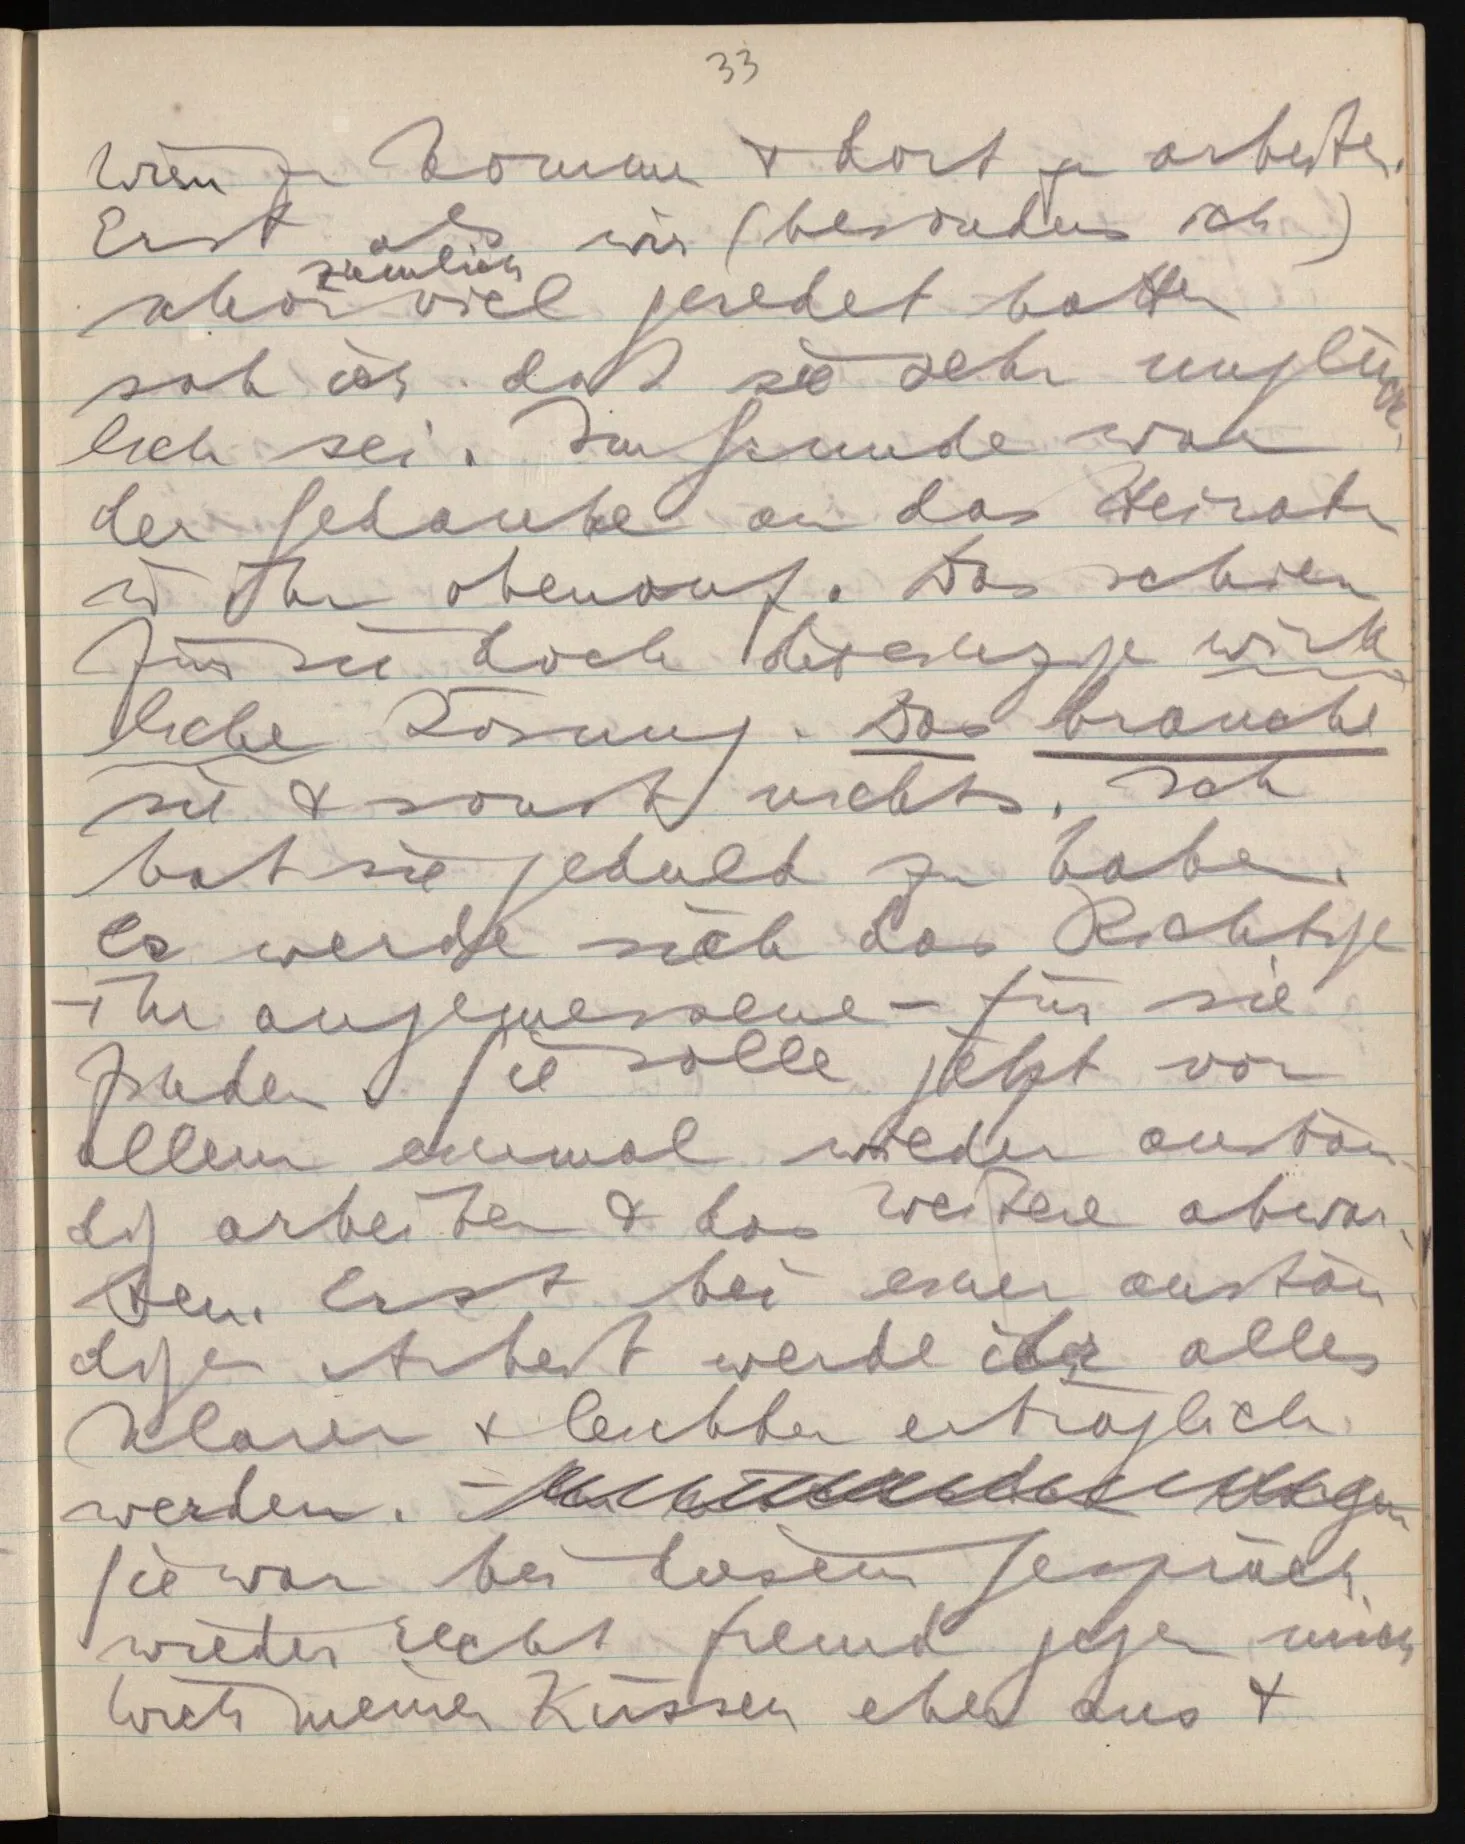 33
Wien zu kommen & dort zu arbeiten.
Erst als wir (besonders ich)
ziemlich
schon viel geredet hatten
sah ich daß sie sehr unglück-
lich sei. Im Grunde war
der Gedanke an das Heiraten
in ihr obenauf. Das schien
für sie doch die einzige wirk
liche Lösung. Das brauche
sie & sonst nichts. Ich
bat sie Geduld zu haben.
Es werde sich das Richtige
– ihr angemessene – für sie
finden. Sie solle jetzt vor
allem einmal wieder anstän-
dig arbeiten & das Weitere abwar-
ten. Erst bei einer anstän-
digen Arbeit werde ihr alles
klarer & leichter erträglich
werden. –
Sie war bei diesem Gespräch
wieder recht fremd gegen mich
wich meinen Küssen eher aus &